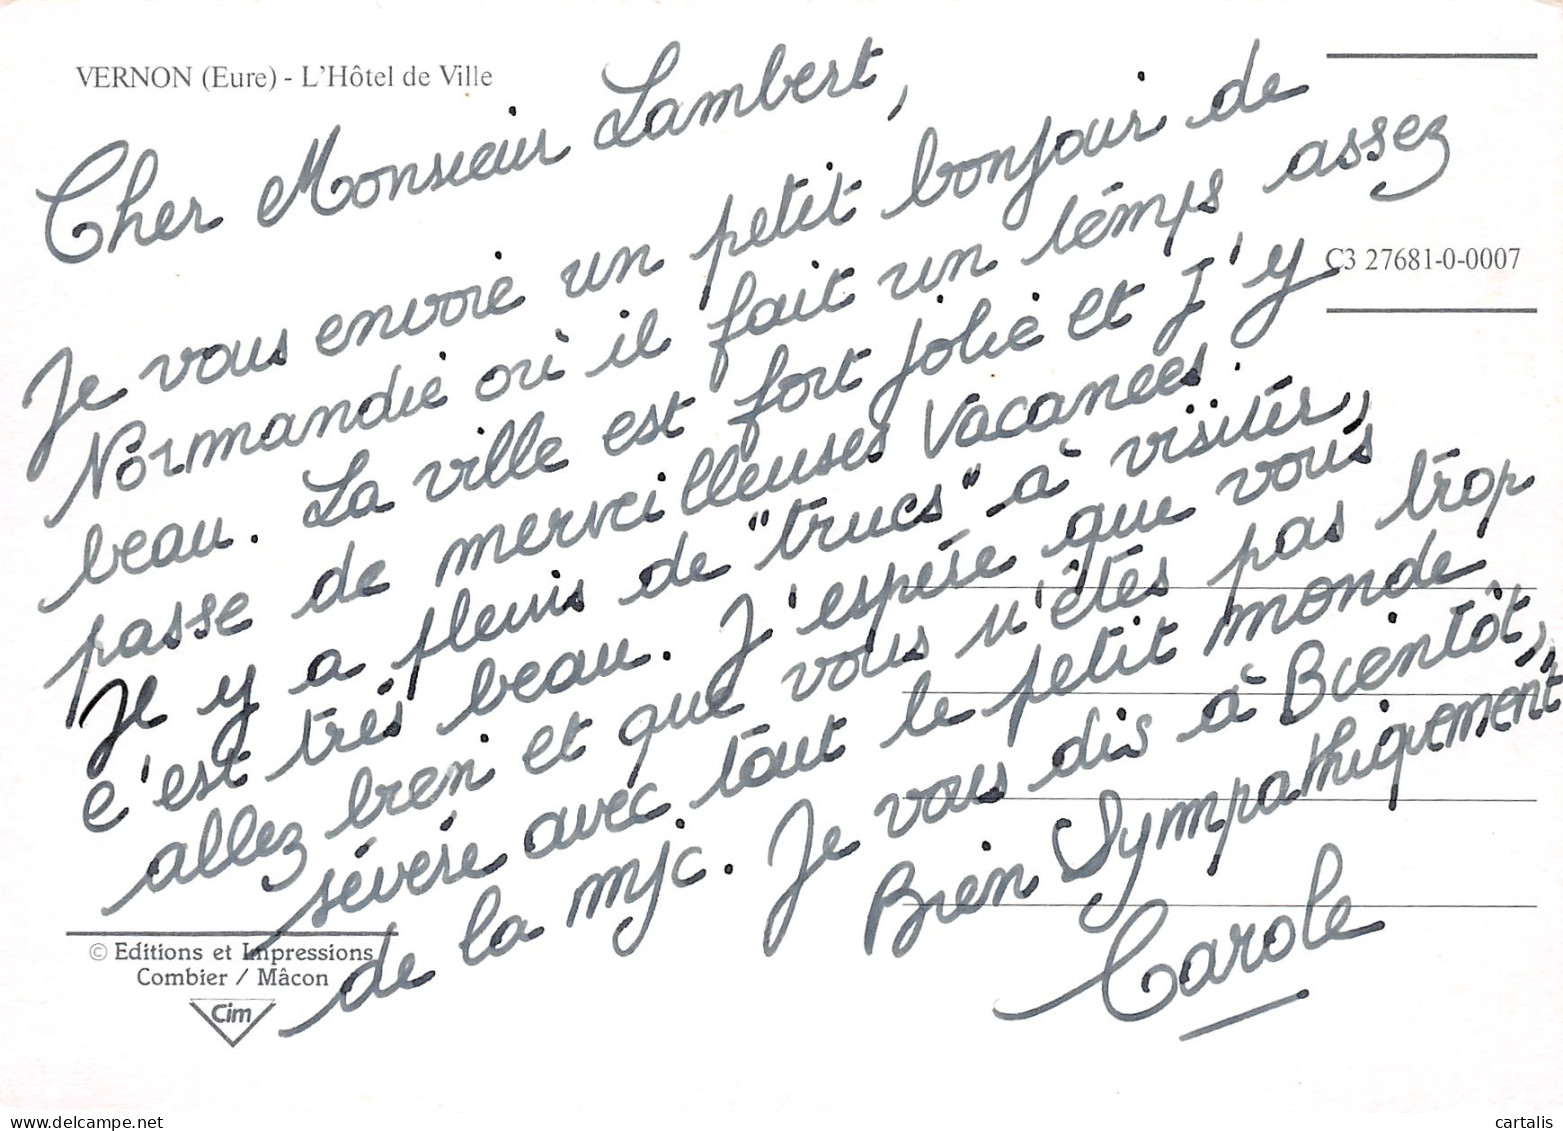 VERNON (Eure) - L'Hôtel de Ville
Cher Monsieur Lambert,
Je vous envoie un petit bonjour de
Normandie où il fait un temps assez
beau. La ville est fort jolie et j'y
passe de merveilleuses vacances.
Il y a pleins de "trucs" à visiter,
c'est très beau. J'espère que vous
allez bien et que vous n'êtes pas trop
sévère avec tout le petit monde
de la mjc. Je vous dis à Bientôt,
Bien Sympathiquement
Carole
C3 27681-0-0007
© Editions et Impressions
Combier / Mâcon
Cim
delcampe.net
cartalis